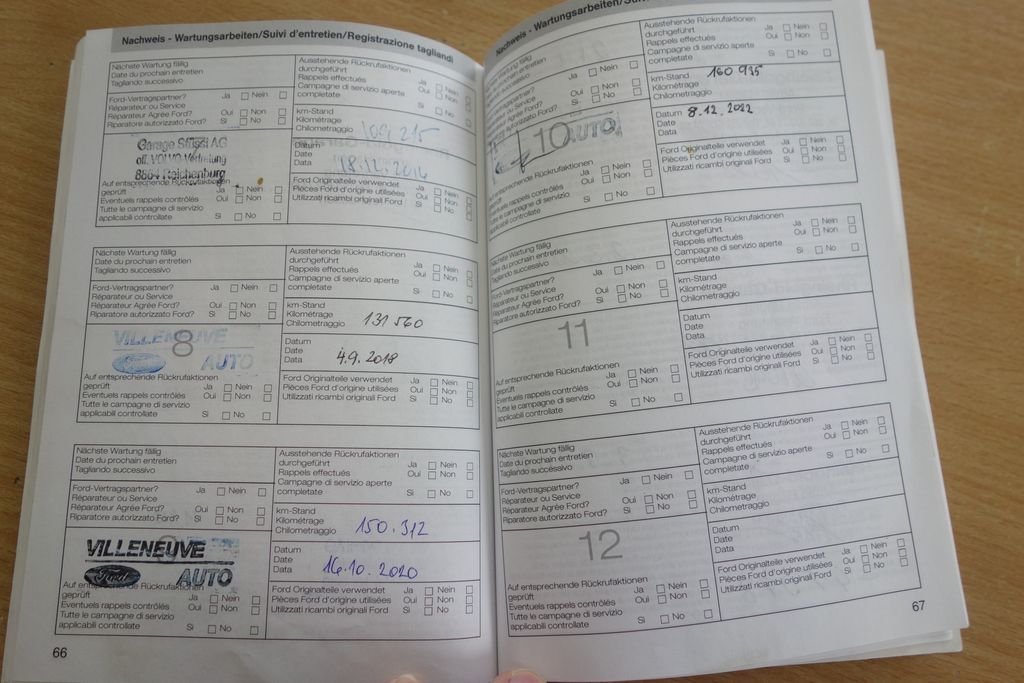 Nachweis - Wartungsarbeiten/Suivi d'entretien/Registrazione tagliandi
Nächste Wartung fällig
Date du prochain entretien
Tagliando successivo
Ausstehende Rückrufaktionen
durchgeführt
Rappels effectués
Campagne di servizio aperte
completate
Ja Nein
Oui Non
Si No
Ford-Vertragspartner?
Réparateur ou Service
Réparateur Agrée Ford?
Riparatore autorizzato Ford?
Ja Nein
Oui Non
Si No
km-Stand
Kilométrage
Chilometraggio
109 215
Garage Stüssi AG
off. VOLVO Vertretung
8864 Reichenburg
Datum
Date
Data
Auf entsprechende Rückrufaktionen
geprüft
Eventuels rappels contrôlés
Tutte le campagne di servizio
applicabili controllate
Ja Nein
Oui Non
Si No
Ford Originalteile verwendet
Pièces Ford d'origine utilisées
Utilizzati ricambi originali Ford
Ja Nein
Oui Non
Si No
Nächste Wartung fällig
Date du prochain entretien
Tagliando successivo
Ausstehende Rückrufaktionen
durchgeführt
Rappels effectués
Campagne di servizio aperte
completate
Ja Nein
Oui Non
Si No
Ford-Vertragspartner?
Réparateur ou Service
Réparateur Agrée Ford?
Riparatore autorizzato Ford?
Ja Nein
Oui Non
Si No
km-Stand
Kilométrage
Chilometraggio
131 560
8
VILLENEUVE
AUTO
Datum
Date
Data
4.9.2018
Auf entsprechende Rückrufaktionen
geprüft
Eventuels rappels contrôlés
Tutte le campagne di servizio
applicabili controllate
Ja Nein
Oui Non
Si No
Ford Originalteile verwendet
Pièces Ford d'origine utilisées
Utilizzati ricambi originali Ford
Ja Nein
Oui Non
Si No
Nächste Wartung fällig
Date du prochain entretien
Tagliando successivo
Ausstehende Rückrufaktionen
durchgeführt
Rappels effectués
Campagne di servizio aperte
completate
Ja Nein
Oui Non
Si No
Ford-Vertragspartner?
Réparateur ou Service
Réparateur Agrée Ford?
Riparatore autorizzato Ford?
Ja Nein
Oui Non
Si No
km-Stand
Kilométrage
Chilometraggio
150.312
VILLENEUVE
Ford AUTO
Datum
Date
Data
16.10.2020
Auf entsprechende Rückrufaktionen
geprüft
Eventuels rappels contrôlés
Tutte le campagne di servizio
applicabili controllate
Ja Nein
Oui Non
Si No
Ford Originalteile verwendet
Pièces Ford d'origine utilisées
Utilizzati ricambi originali Ford
Ja Nein
Oui Non
Si No
66
Nachweis - Wartungsarbeiten/Suivi
Date du prochain entretien
Tagliando successivo
Ausstehende Rückrufaktionen
durchgeführt
Rappels effectués
Campagne di servizio aperte
completate
Ja Nein
Oui Non
Si No
Ja Nein
Oui Non
Si No
km-Stand
Kilométrage
Chilometraggio
160 935
10
AUTO
Datum
Date
Data
8.12.2022
Auf entsprechende Rückrufaktionen
geprüft
Eventuels rappels contrôlés
Tutte le campagne di servizio
applicabili controllate
Ja Nein
Oui Non
Si No
Ford Originalteile verwendet
Pièces Ford d'origine utilisées
Utilizzati ricambi originali Ford
Ja Nein
Oui Non
Si No
Nächste Wartung fällig
Date du prochain entretien
Tagliando successivo
Ausstehende Rückrufaktionen
durchgeführt
Rappels effectués
Campagne di servizio aperte
completate
Ja Nein
Oui Non
Si No
Ford-Vertragspartner?
Réparateur ou Service
Réparateur Agrée Ford?
Riparatore autorizzato Ford?
Ja Nein
Oui Non
Si No
km-Stand
Kilométrage
Chilometraggio
11
Datum
Date
Data
Auf entsprechende Rückrufaktionen
geprüft
Eventuels rappels contrôlés
Tutte le campagne di servizio
applicabili controllate
Ja Nein
Oui Non
Si No
Ford Originalteile verwendet
Pièces Ford d'origine utilisées
Utilizzati ricambi originali Ford
Ja Nein
Oui Non
Si No
Nächste Wartung fällig
Date du prochain entretien
Tagliando successivo
Ausstehende Rückrufaktionen
durchgeführt
Rappels effectués
Campagne di servizio aperte
completate
Ja Nein
Oui Non
Si No
Ford-Vertragspartner?
Réparateur ou Service
Réparateur Agrée Ford?
Riparatore autorizzato Ford?
Ja Nein
Oui Non
Si No
km-Stand
Kilométrage
Chilometraggio
12
Datum
Date
Data
Auf entsprechende Rückrufaktionen
geprüft
Eventuels rappels contrôlés
Tutte le campagne di servizio
applicabili controllate
Ja Nein
Oui Non
Si No
Ford Originalteile verwendet
Pièces Ford d'origine utilisées
Utilizzati ricambi originali Ford
Ja Nein
Oui Non
Si No
67